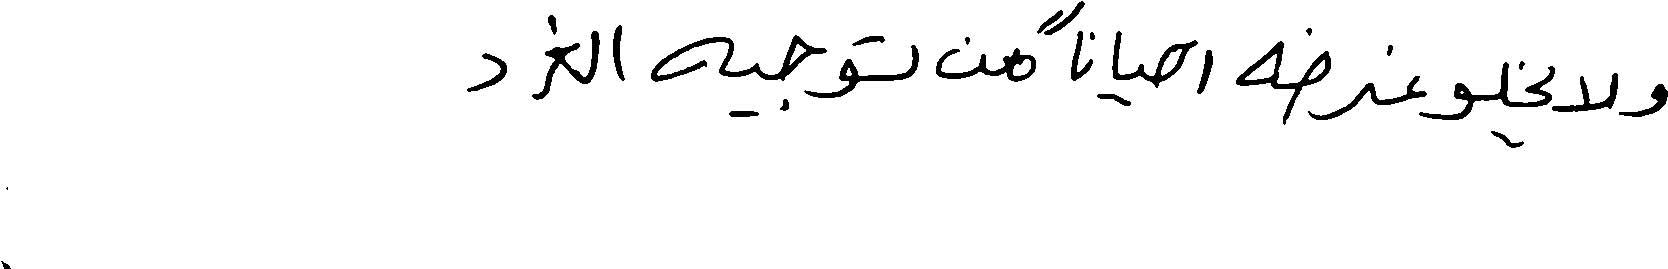 ولا يخلو غرضه احياناً من توجيه الفرد